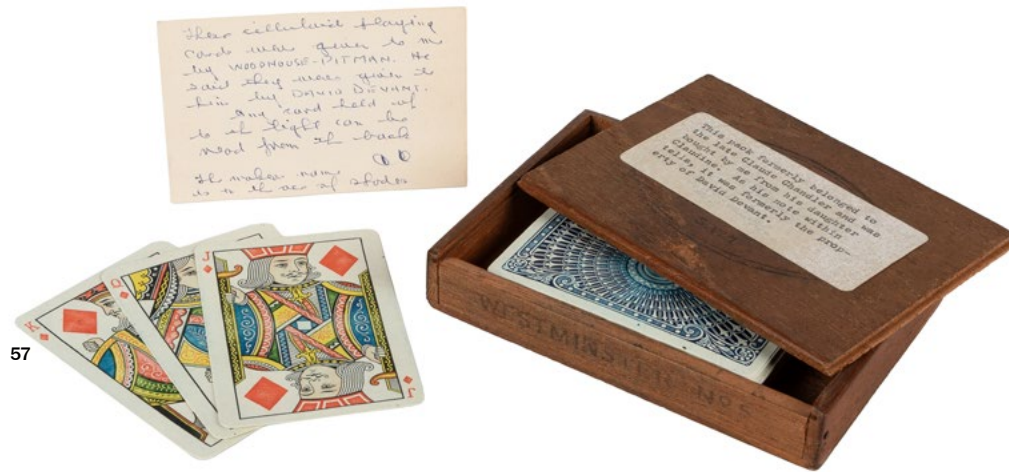 These celluloid playing
cards were given to me
by WOODHOUSE-PITMAN. He
said they were given to
him by DAVID DEVANT.
Any card held up
to the light can be
read from the back
The makers name
is on the ace of spades
This pack formerly belonged to
the late Claude Chandler and was
bought by me from his daughter
Claudine. As his note within
tells, it was formerly the prop-
erty of David Devant.
WESTMINSTER No5
K
Q
J
J
57